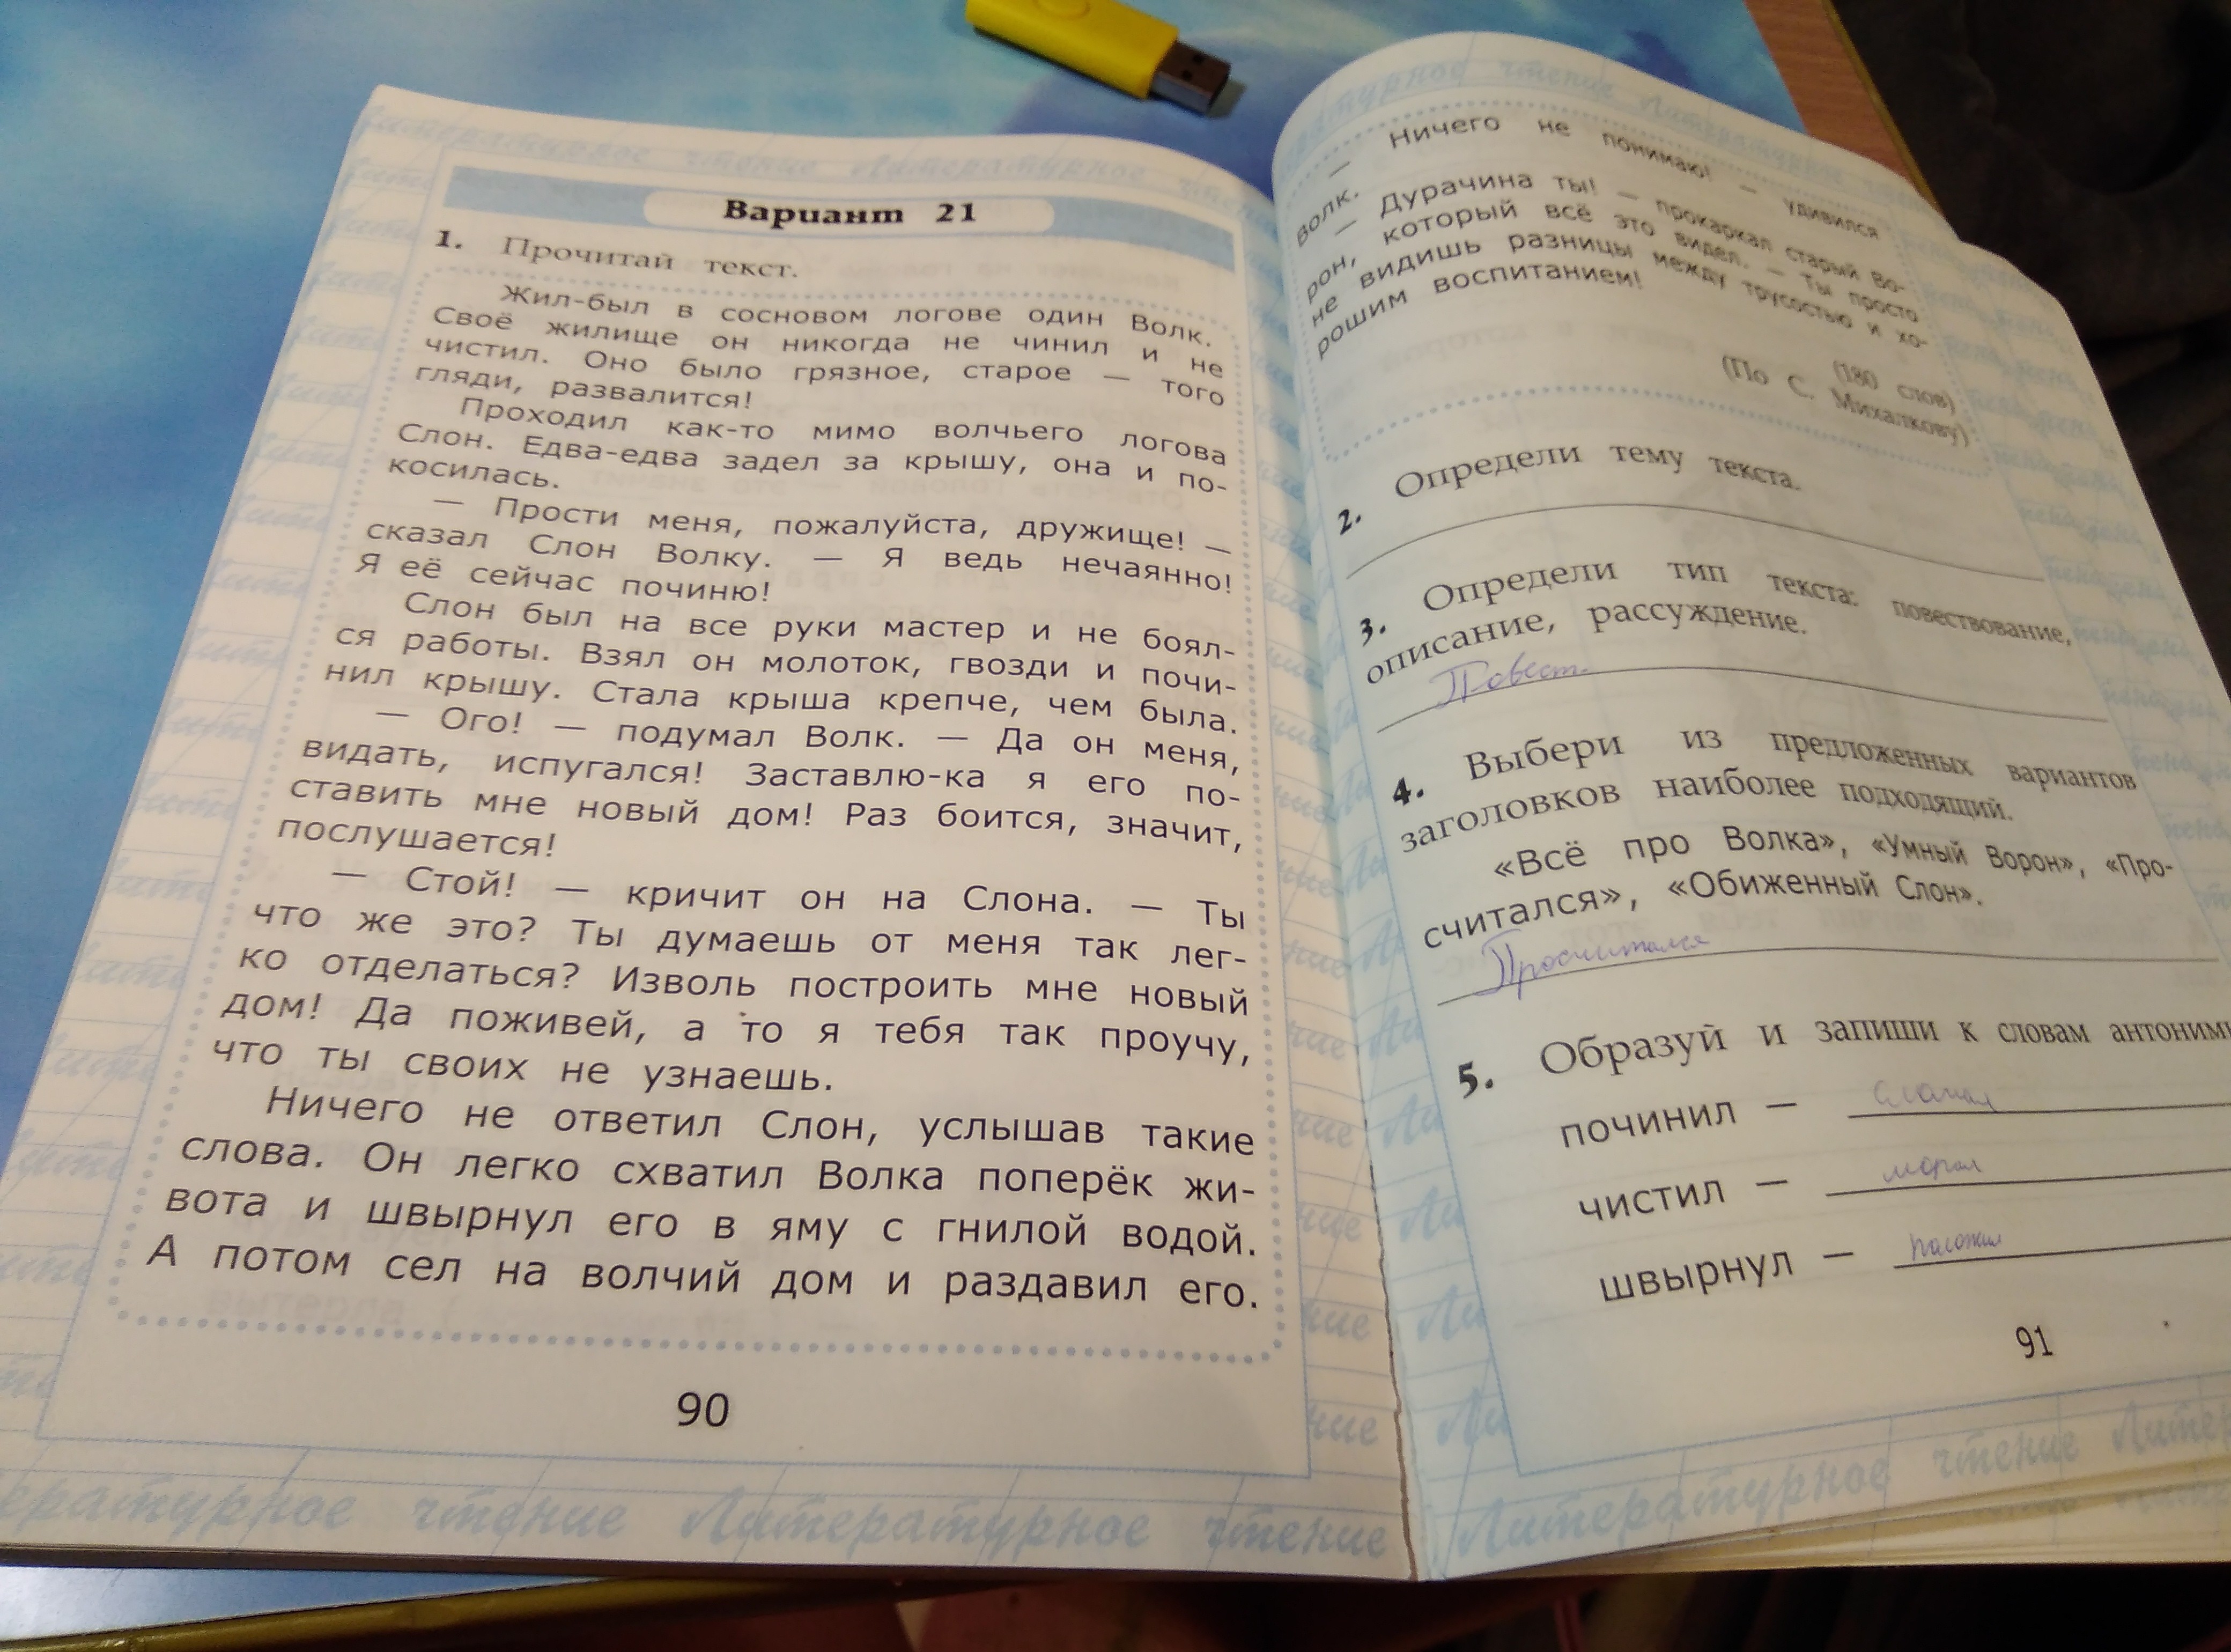 Вариант 21
1. Прочитай текст.
Жил-был в сосновом логове один Волк.
Своё жилище он никогда не чинил и не
чистил. Оно было грязное, старое — того
гляди, развалится!
Проходил как-то мимо волчьего логова
Слон. Едва-едва задел за крышу, она и по-
косилась.
— Прости меня, пожалуйста, дружище! —
сказал Слон Волку. — Я ведь нечаянно!
Я её сейчас починю!
Слон был на все руки мастер и не боял-
ся работы. Взял он молоток, гвозди и почи-
нил крышу. Стала крыша крепче, чем была.
— Ого! — подумал Волк. — Да он меня,
видать, испугался! Заставлю-ка я его по-
ставить мне новый дом! Раз боится, значит,
послушается!
— Стой! — кричит он на Слона. — Ты
что же это? Ты думаешь от меня так лег-
ко отделаться? Изволь построить мне новый
дом! Да поживей, а то я тебя так проучу,
что ты своих не узнаешь.
Ничего не ответил Слон, услышав такие
слова. Он легко схватил Волка поперёк жи-
вота и швырнул его в яму с гнилой водой.
А потом сел на волчий дом и раздавил его.
90
Литературное чтение Литературное чтение
— Ничего не понимаю! — удивился
Волк.
— Дурачина ты! — прокаркал старый Во-
рон, который всё это видел. — Ты просто
не видишь разницы между трусостью и хо-
рошим воспитанием!
(180 слов)
(По С. Михалкову)
2. Определи тему текста.
3. Определи тип текста: повествование,
описание, рассуждение.
Повест.
4. Выбери из предложенных вариантов
заголовков наиболее подходящий.
«Всё про Волка», «Умный Ворон», «Про-
считался», «Обиженный Слон».
Просчитался
5. Образуй и запиши к словам антонимы
починил — сломал
чистил — марал
швырнул — положил
91
Литературное чтение